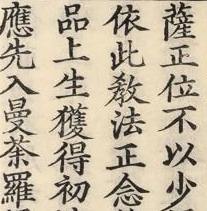 薩正位不以少
依此教法正念
品上生獲得初
應先入曼荼羅